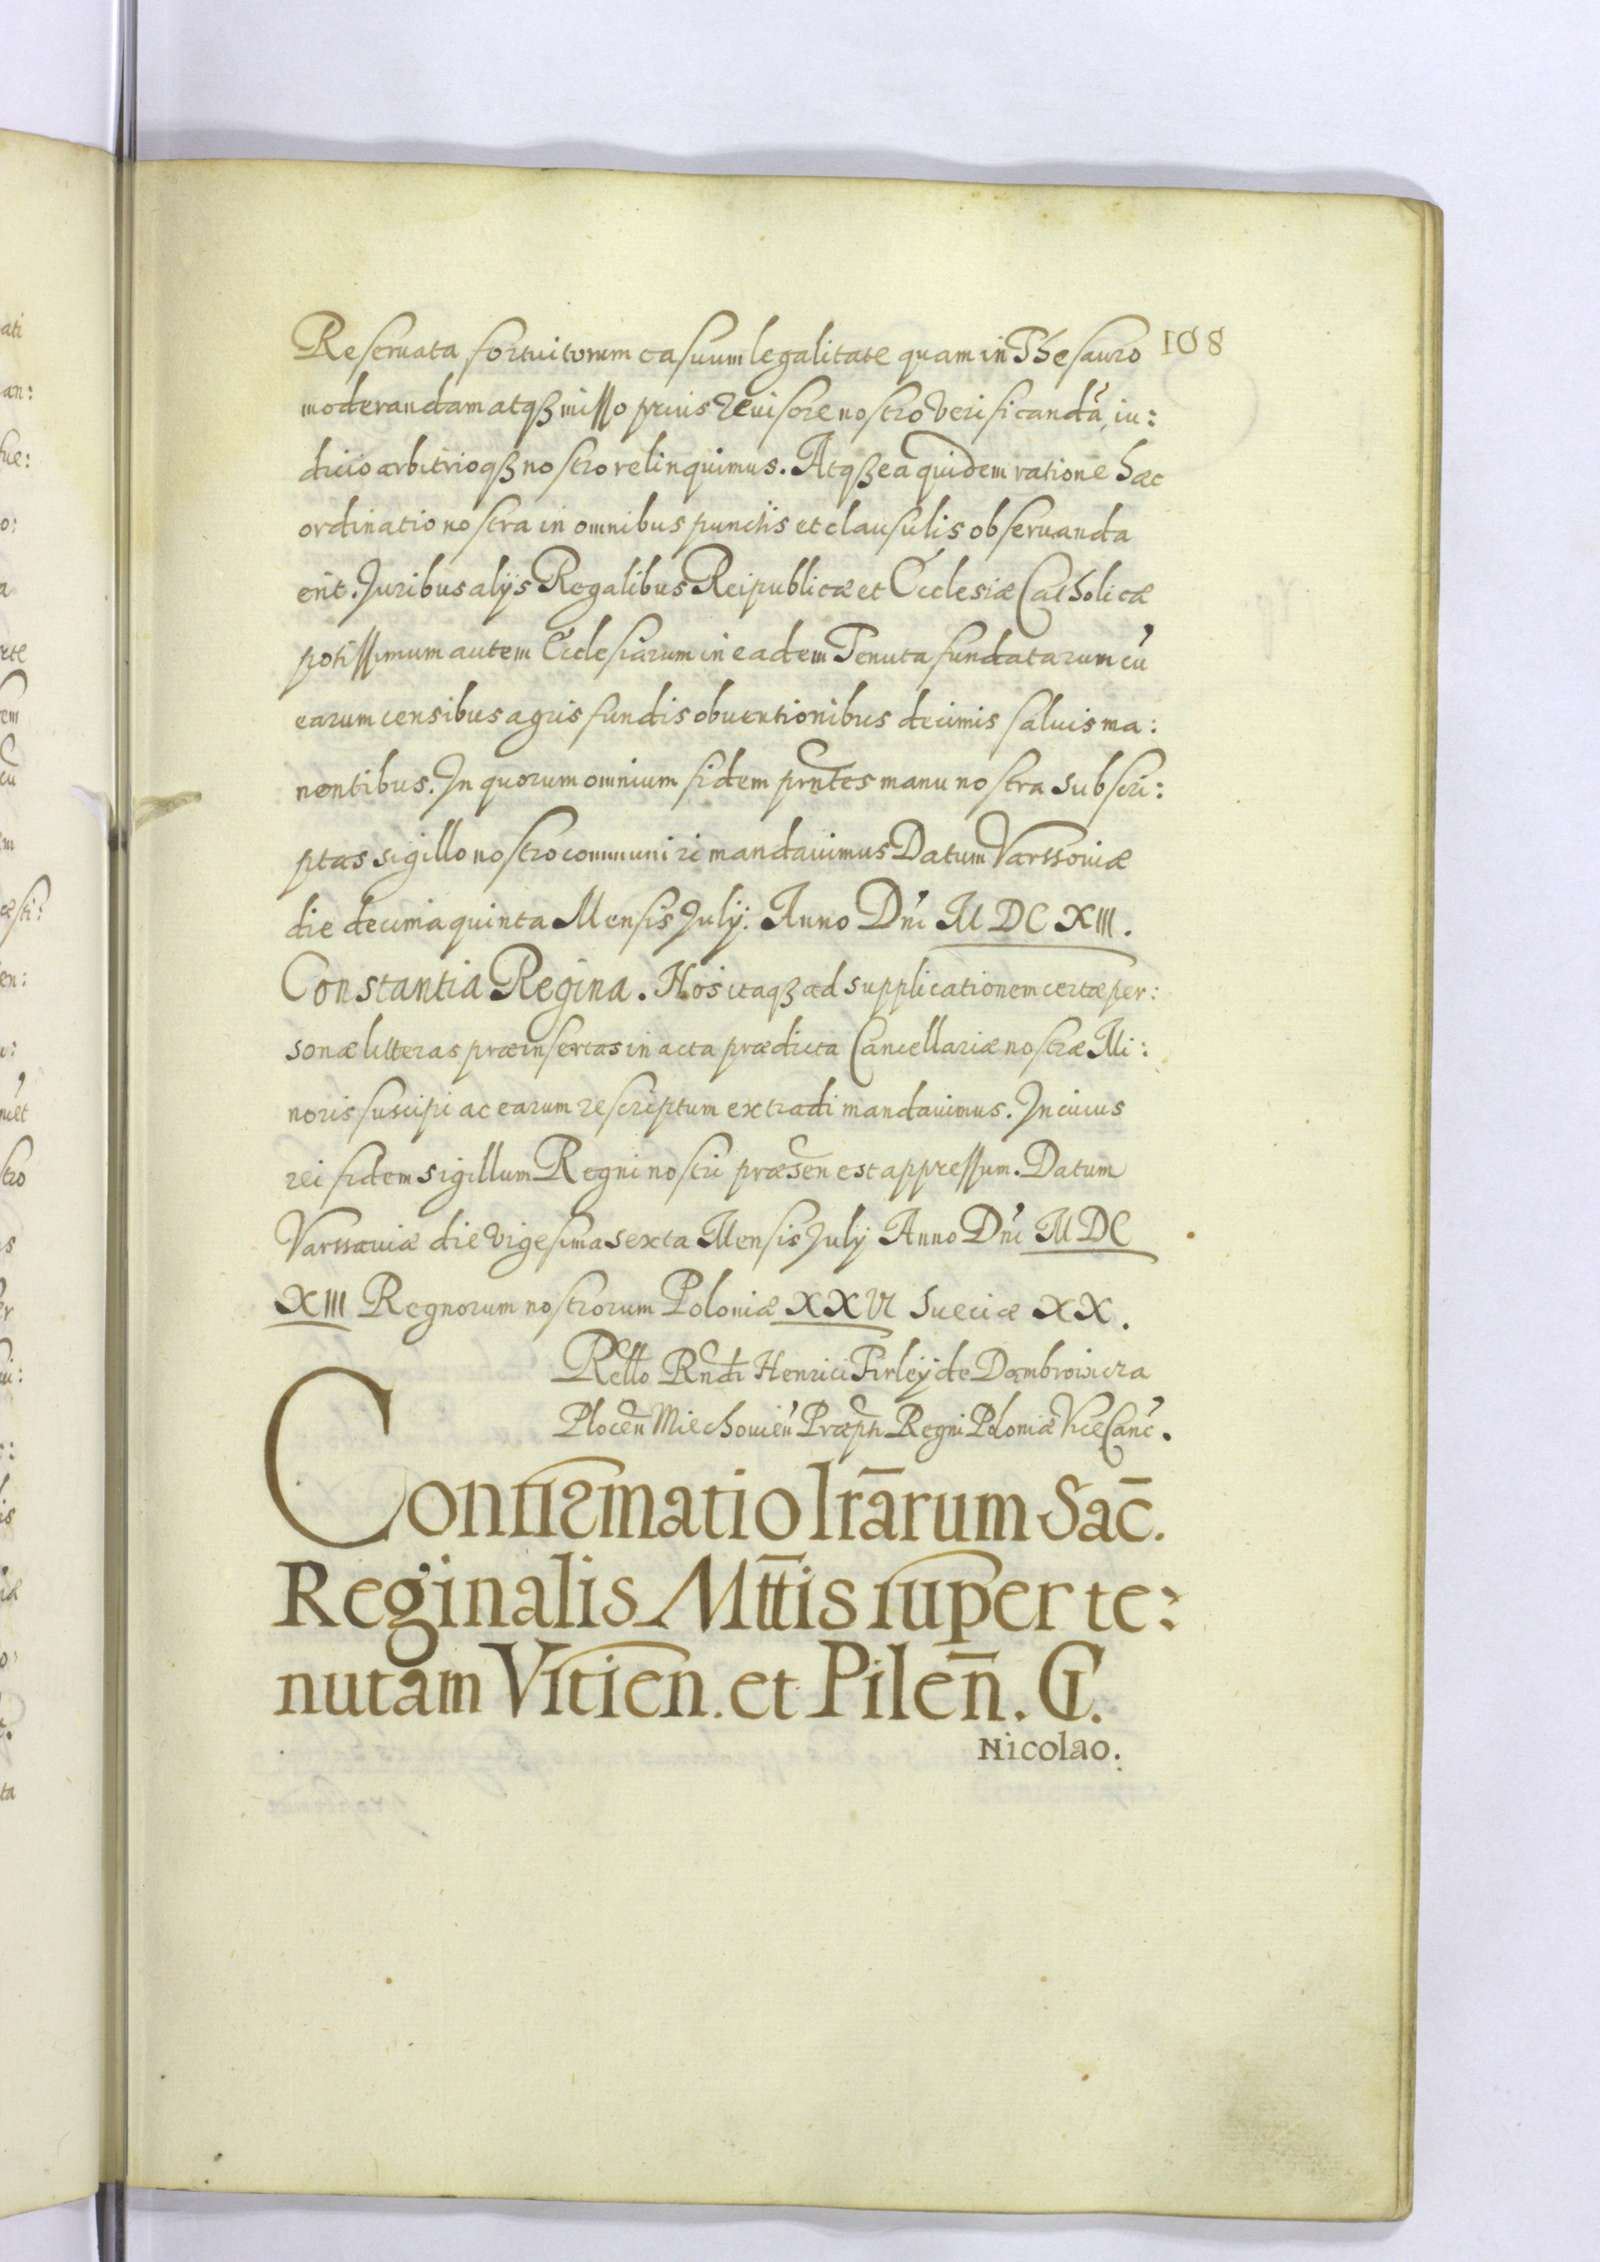 108
Reseruata fortuitorum casuum legalitate quam in Thesauro
moderandam atqß misso prius reuisore nostro verificandã, iu:
dicio arbitrioqß nostro relinquimus. Atqß ea quidem ratione hæc
ordinatio nostra in omnibus punctis et clausulis obseruanda
erit. Juribus alijs Regalibus Reipublicæ et Ecclesiæ Catholicæ
potissimum autem Ecclesiarum in eadem Tenuta fundatarum cũ
earum censibus agris fundis obuentionibus decimis saluis ma:
nentibus. In quorum omnium fidem prñtes manu nostra subscri:
ptas sigillo nostro communiri mandauimus Datum Varssouiæ
die decima quinta Mensis July. Anno Dñi M DC XIII.
Constantia Regina. Nos itaqß ad supplicationem certæ per:
sonæ litteras præinsertas in acta prædicta Cancellariæ nostræ Mi:
noris suscipi ac earum rescriptum extradi mandauimus. In cuius
rei fidem sigillum Regni nostri præsen est appressum. Datum
Varssauiæ die vigesima sexta Mensis July Anno Dñi M DC
XIII Regnorum nostrorum Poloniæ XXVI Sueciæ XX.
Rello Rndi Henrici Firleÿ de Dambrowicza
Plocen̄ Miechouien̄ Præpti Regni Poloniæ Vice Canc̄.
Confirmatio lrārum Sac̄.
Reginalis Mttis super te:
nutam Vstien. et Pilen̄. G.
Nicolao.